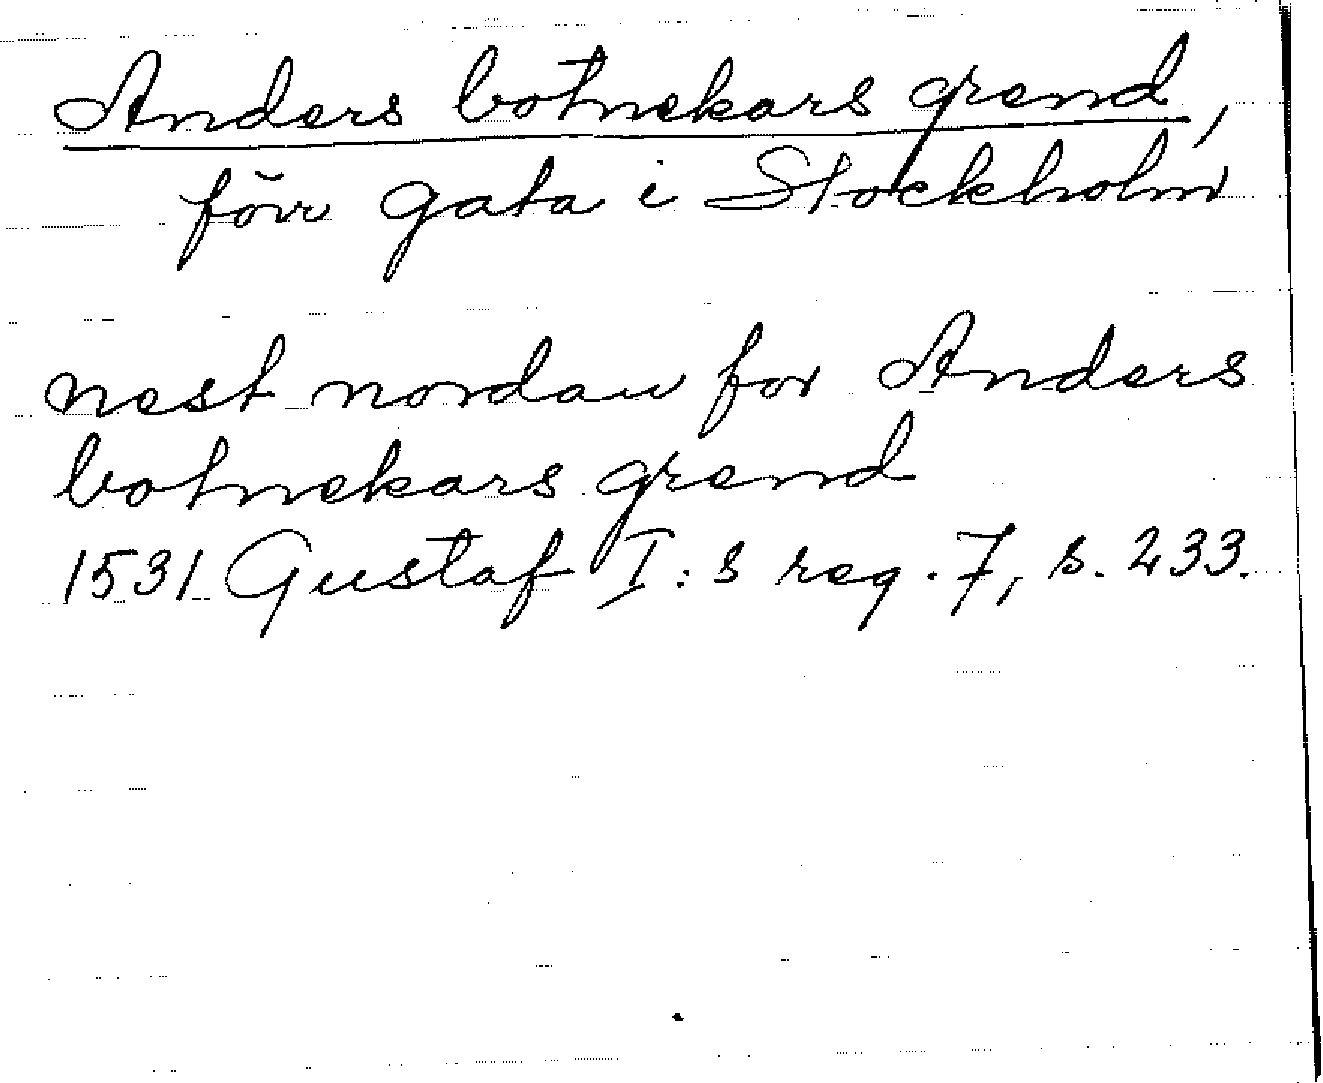 Anders botnekars grend,
förr gata i Stockholm
nest nordan for Anders
botnekars grend
1531 Gustaf I:s reg. 7, s. 233.